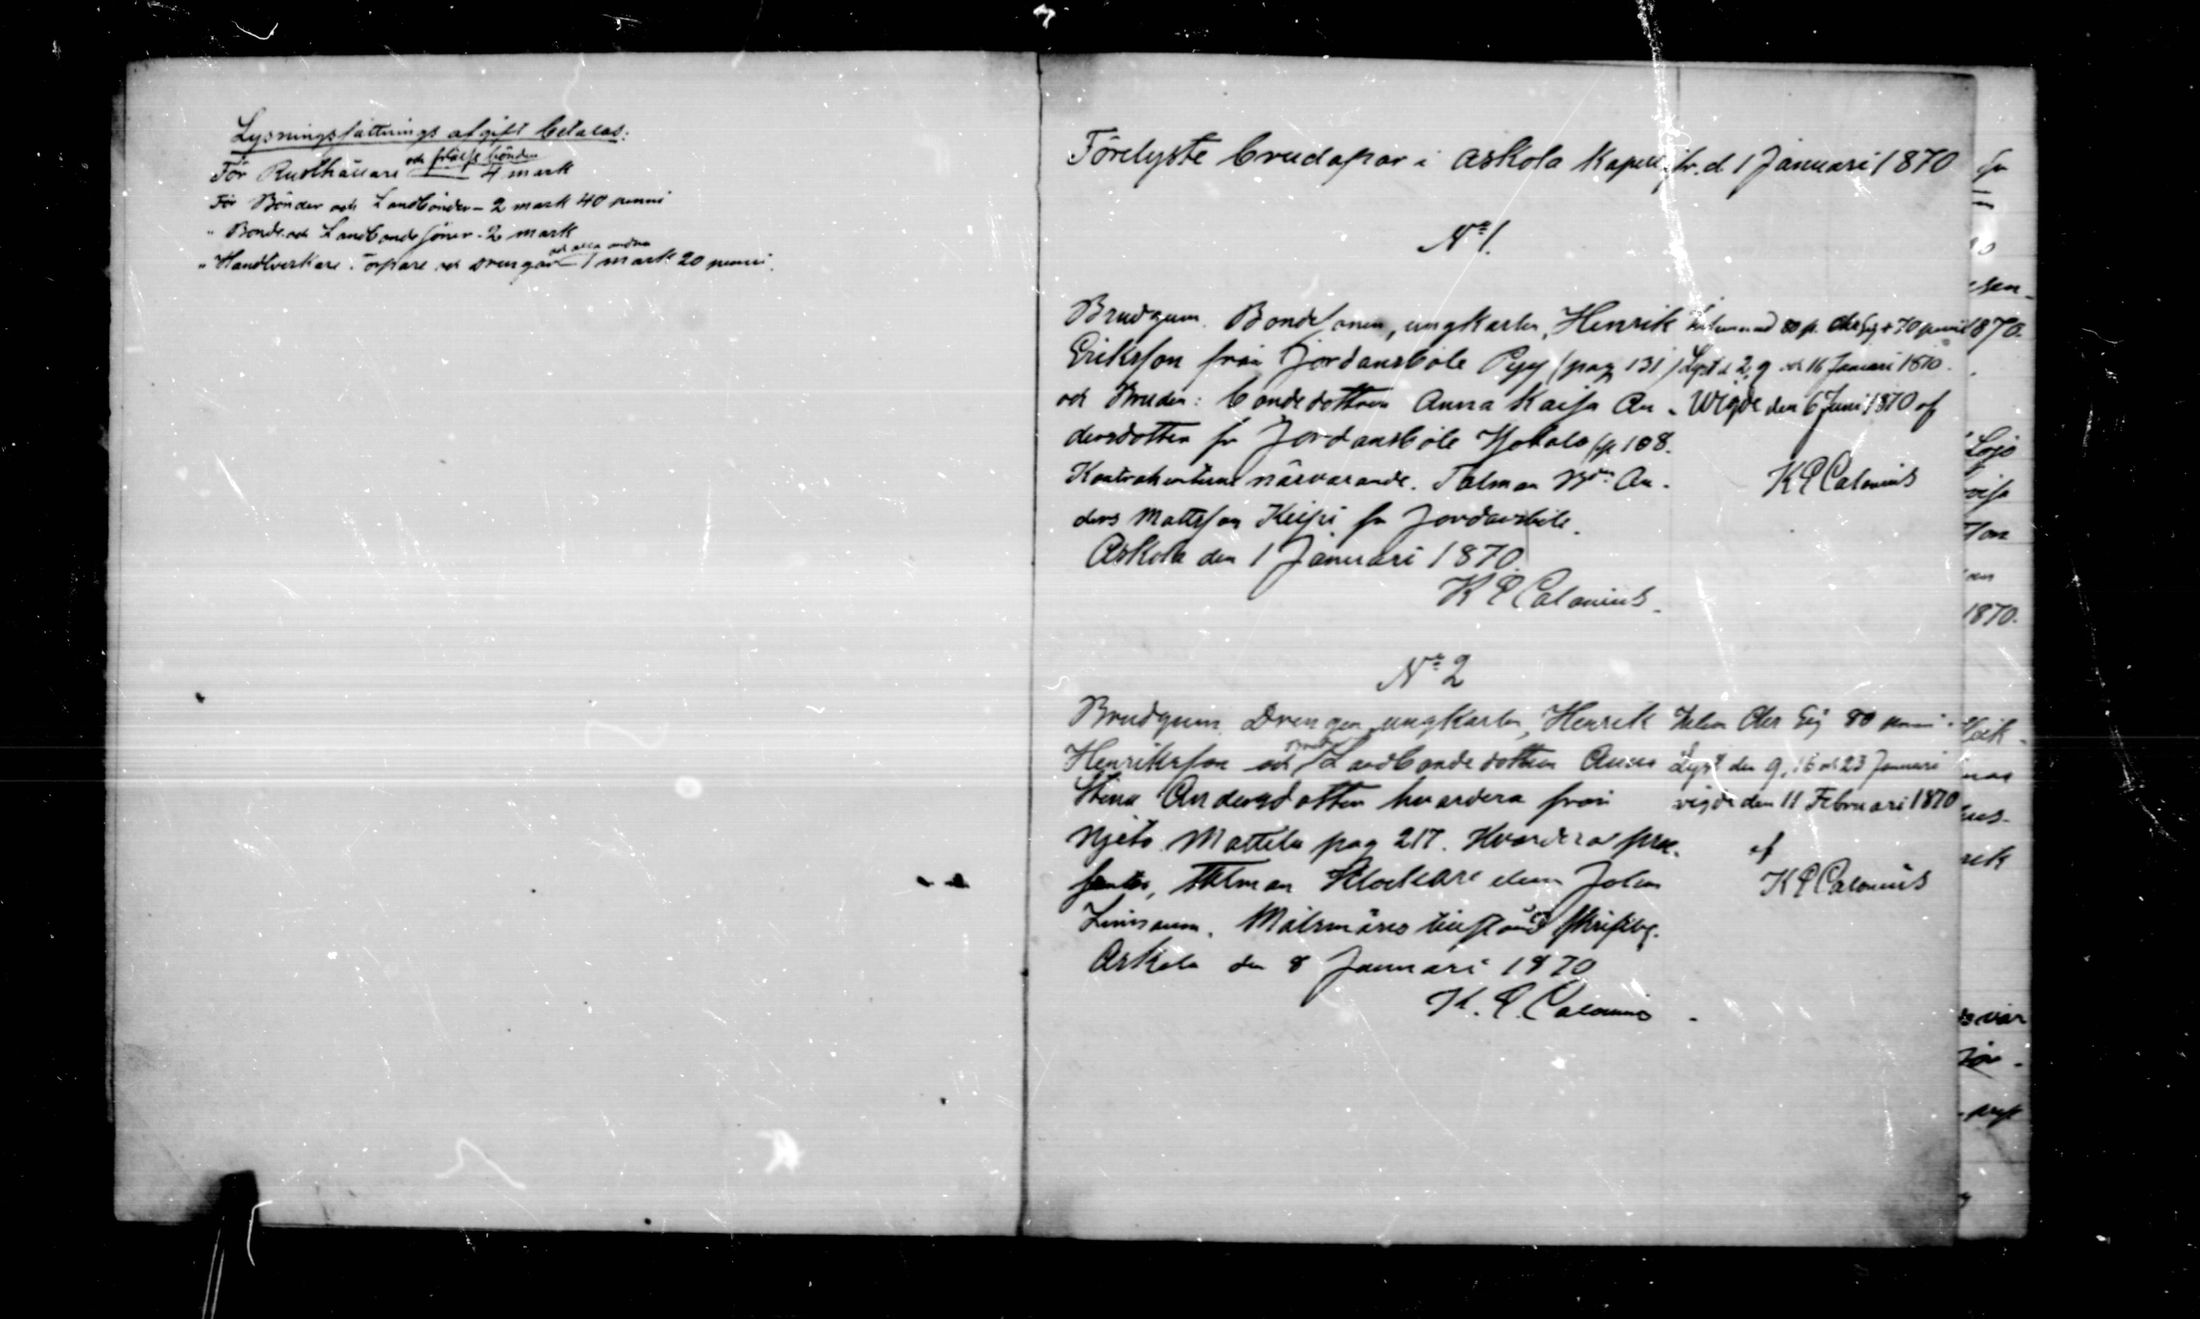 Lysningssättnings afgift betalas:
För Rusthållare och frälse bönder 4 mark
För Bönder och Landbönder - 2 mark 40 penni
" Bonde och Landbonde söner - 2 mark
" Handtverkare Torpare och drengar och alla andra - 1 mark 20 penni.
Förelyste brudapar i Askola Kapell fr. d 1 Januari 1870
No 1.
Brudgum. Bondesonen, ungkarln, Henrik
Eriksson från Jordansböle Pyy (pag 131)
och Bruden: bondedottren Anna Kaisa An-
dersdotter fr Jordansböle Hokala p 108.
Kontrahenterna närvarande. Talman An-
ders Mattsson Keipi fr Jordansböle.
Askola den 1 Januari 1870.
K P Calonius.
80 p. 70 penni
Lyst d 2, 9 och 16 Januari 1870.
Wigde den 6 Juni 1870 af
K P Calonius
No 2
Brudgum Drengen ungkarln, Henrik
Henriksson och Landbondedottren Anna
Stina Andersdotter hvardera från
Njetö Mattila pag 217. Hvardera præ-
sentes, talman Klockare Johan
Askola den 8 Januari 1870
K. P. Calonius
80 penni.
Lyst den 9, 16 och 23 Januari
vigde den 11 Februari 1870
af
K P Calonius
1870.
1870.